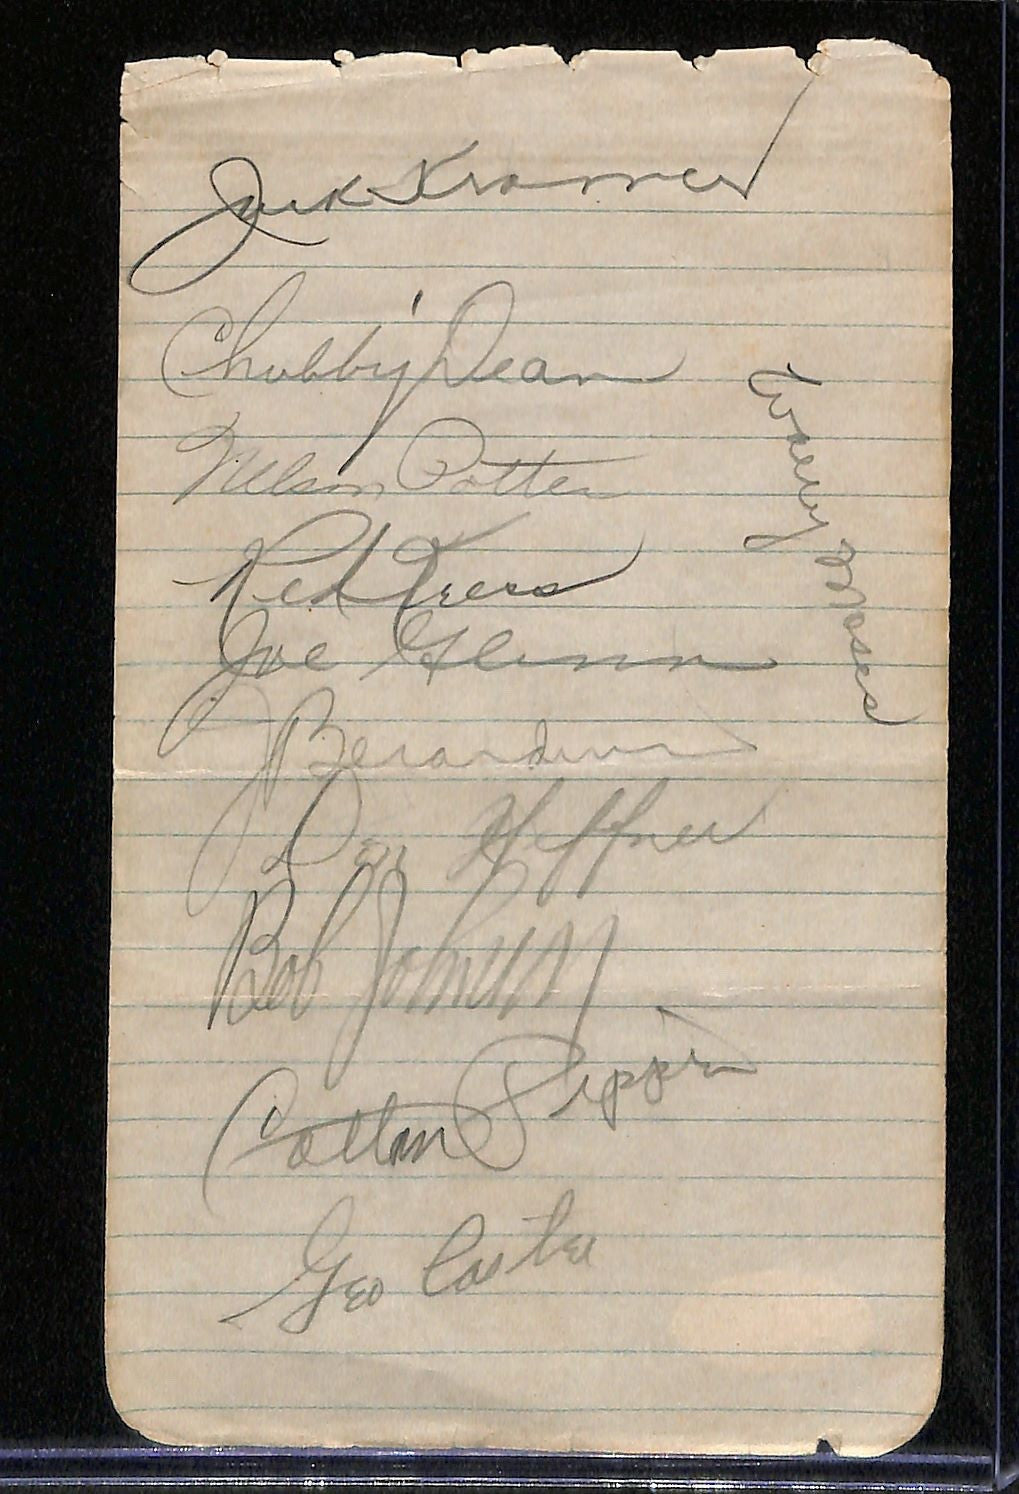 Jack Kramer
Chubby Dean
Nelson Potter
Red Kress
Joe Glenn
J Berardino
Don Heffner
Bob Johnson
Cotton Pippen
Geo Caster
Wally Moses